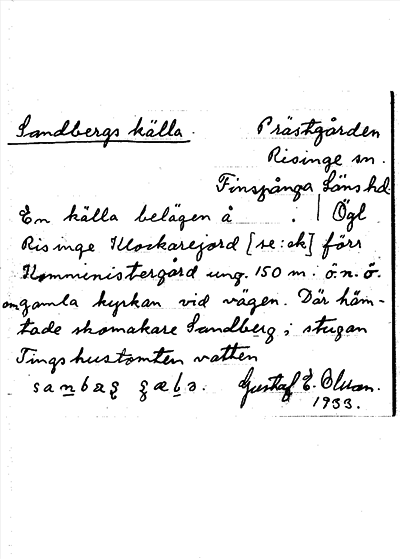 Sandbergs källa. Prästgården
Risinge sn.
Finspånga Läns hd
En källa belägen å Ögl
Risinge Klockarejord [se: ek] förr
Komministergård ung. 150 m. ö.n.ö.
om gamla kyrkan vid vägen. Där häm-
tade skomakare Sandberg, i stugan
Tingshustomten vatten
Gustaf E. Olsson.
1933.